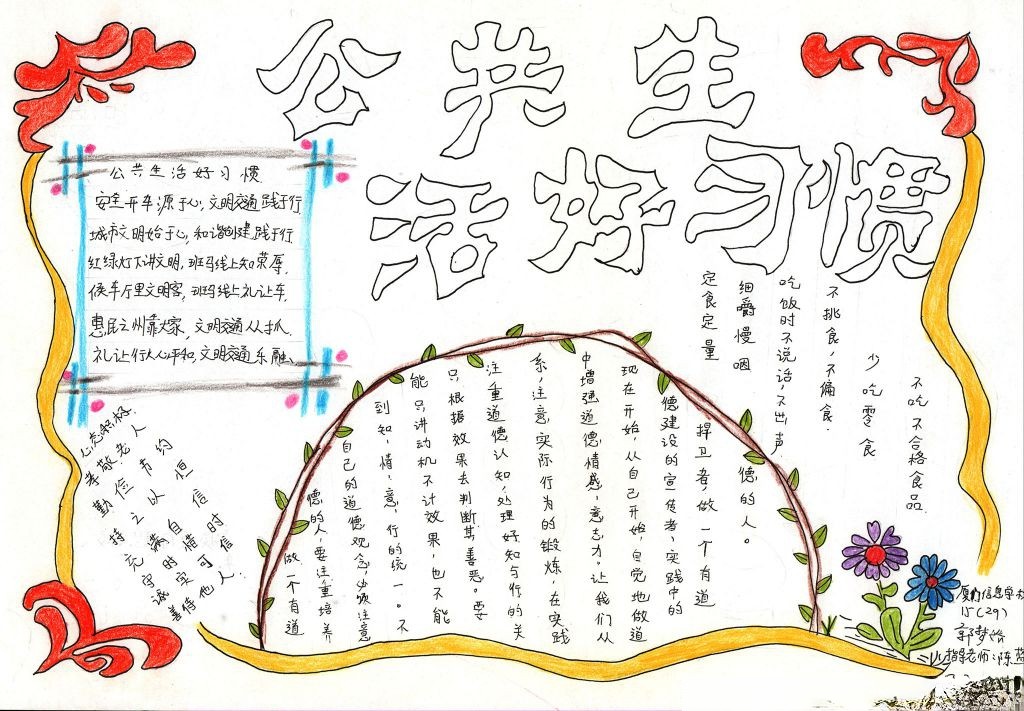 公共生
活好习惯
公共生活好习惯
安全开车源于心,文明交通践于行
城市文明始于心,和谐创建践于行
红绿灯下讲文明,斑马线上知荣辱,
候车厅里文明客,斑马线上礼让车,
惠民之州靠大家,文明交通从 抓,
礼让行人心平和,文明交通乐融
心态积极.
孝敬老人
勤俭节约
持之以恒
充满自信
守时惜时
诚实可信
善待他人.
做一个有道
德的人,要注重培养
自己的道德观念,必须注意
到知、情、意、行的统一。不
能只讲动机不计效果,也不能
只根据效果去判断其善恶。要
注重道德认知,处理好知与行的关
系,注意实际行为的锻炼,在实践
中增强道德情感、意志力。让我们从
现在开始,从自己开始,自觉地做道
德建设的宣传者、实践中的
捍卫者,做一个有道
德的人。
定食定量
细嚼慢咽
吃饭时不说话,不出声
不挑食,不偏食.
少吃零食
不吃不合格食品.
厦门信息学校
15(29)
郭梦
指导老师:陈